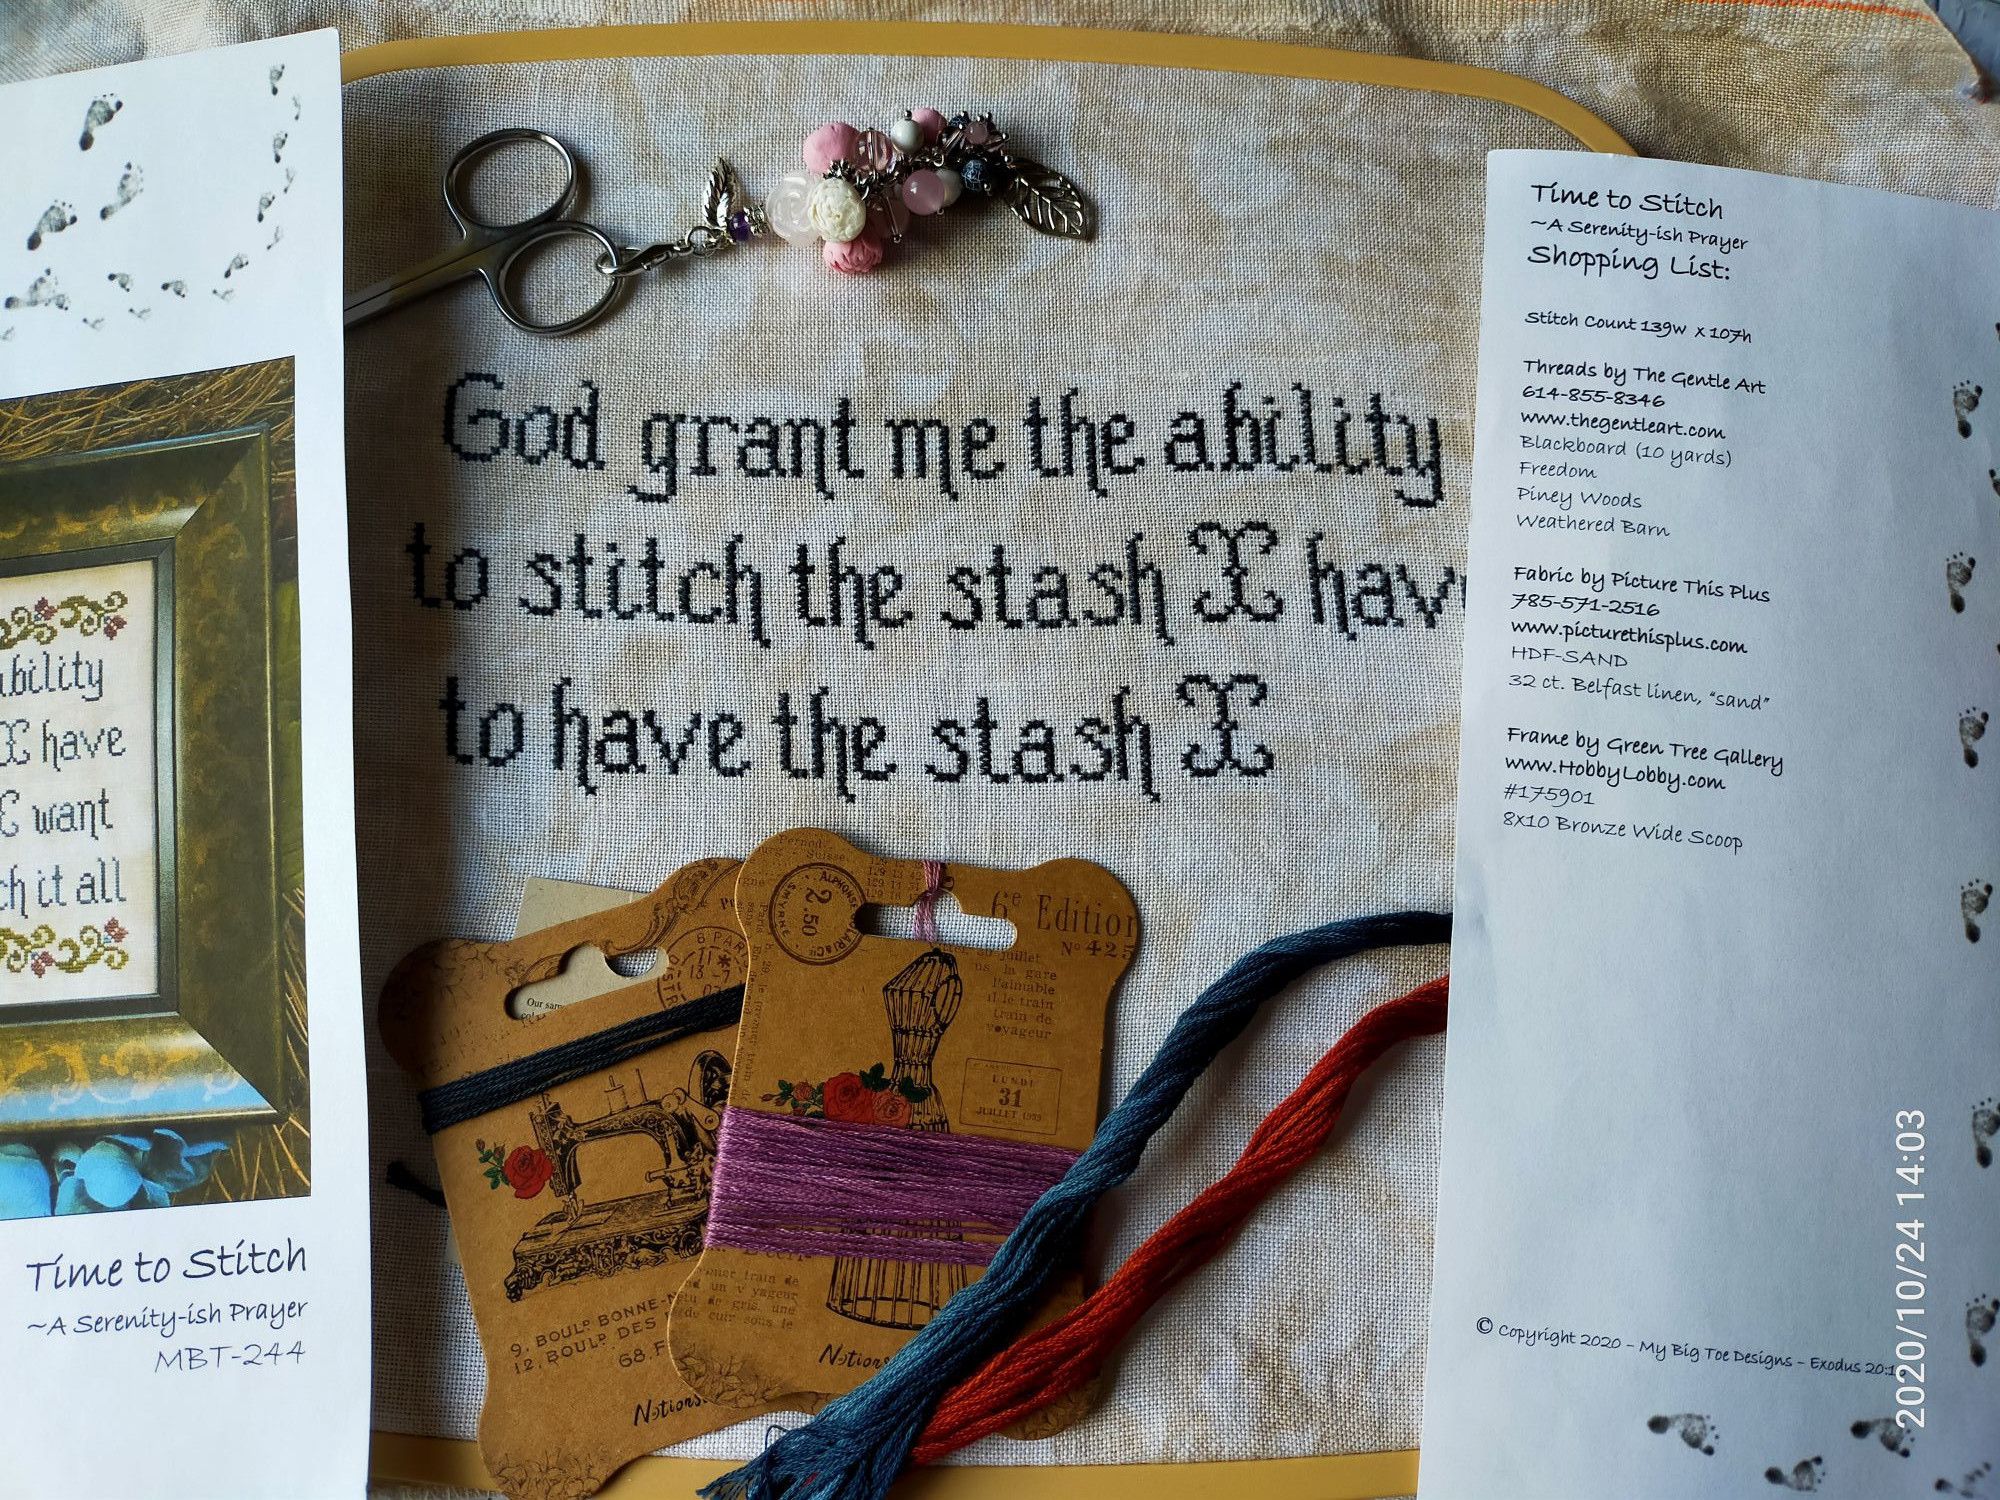 ability
I have
want
it all
Time to Stitch
~A Serenity-ish Prayer
MBT-244
God grant me the ability
to stitch the stash I hav
to have the stash I
Time to Stitch
~A Serenity-ish Prayer
Shopping List:
Stitch Count 139w x 107h
Threads by The Gentle Art
614-855-8346
www.thegentleart.com
Blackboard (10 yards)
Freedom
Piney Woods
Weathered Barn
Fabric by Picture This Plus
785-571-2516
www.picturethisplus.com
HDF-SAND
32 ct. Belfast linen, "sand"
Frame by Green Tree Gallery
www.HobbyLobby.com
#175901
8x10 Bronze Wide Scoop
© Copyright 2020 - My Big Toe Designs - Exodus
Our
9. BOULD BONNE-N
12, BOULD DES
68.F
Notions
2.50
6e Edition
No 425
juillet
la gare
l'aimable
il le train
train de
voyageur
LUNDI
31
JUILLET
train de
un voyageur
de gris, une
cuir sous le
Notions
2020/10/24 14:03